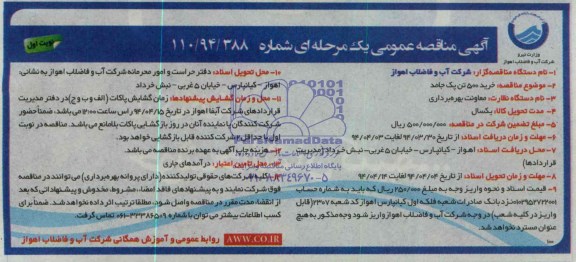 وزارت نیرو
شرکت آب و فاضلاب اهواز
آگهی مناقصه عمومی یک مرحله ای شماره ۱۱۰/۹۴/۳۸۸
نوبت اول
۱- نام دستگاه مناقصه‌گزار: شرکت آب و فاضلاب اهواز
۲- موضوع مناقصه: خرید ۵۰۰ تن پک جامد
۳- نام دستگاه نظارت: معاونت بهره‌برداری
۴- مدت تحویل کالا: یکسال
۵- مبلغ تضمین شرکت در مناقصه: ۵۰۰/۰۰۰/۰۰۰ ریال
۶- مهلت و زمان دریافت اسناد: از تاریخ ۹۴/۰۲/۳۰ لغایت ۹۴/۰۳/۰۳
۷- محل دریافت اسناد: اهواز - کیانپارس - خیابان ۵ غربی - نبش خرداد (مدیریت
قراردادها)
۸- مهلت و زمان تحویل اسناد: از تاریخ ۹۴/۰۳/۰۴ لغایت ۹۴/۰۳/۱۴
۹- قیمت اسناد و نحوه واریز وجه به مبلغ ۲۵۰/۰۰۰ ریال که باید به شماره حساب
نزد بانک صادرات شعبه فلکه اول کیانپارس اهواز کد شعبه ۲۳۰۷ (قابل
واریز در کلیه شعب) در وجه شرکت آب و فاضلاب اهواز واریز شود وجه مذکور به هیچ
عنوان مسترد نخواهد شد.
۱۰- محل تحویل اسناد: دفتر حراست و امور محرمانه شرکت آب و فاضلاب اهواز به نشانی:
اهواز - کیانپارس - خیابان ۵ غربی - نبش خرداد
۱۱- محل و زمان گشایش پیشنهادها: زمان گشایش پاکات (الف و ب و ج) در دفتر مدیریت
قراردادهای شرکت آبفا اهواز در تاریخ ۹۴/۰۳/۱۵ راس ساعت ۱۲:۰۰ می باشد. ضمناً حضور
شرکت کنندگان یا نماینده آنان در روز بازگشایی پاکات بلامانع می باشد. مناقصه در نوبت
اول با حداقل شرکت کننده قابل بازگشایی خواهد بود.
۱۲- هزینه چاپ آگهی به عهده برنده مناقصه می باشد.
۱۳- محل تامین اعتبار: درآمدهای جاری
۱۴- کلیه شرکت های حقوقی تولیدکننده (دارای پروانه بهره برداری) می توانند در مناقصه
فوق شرکت نمایند و به پیشنهادهای فاقد امضاء، مشروط، مخدوش و پیشنهاداتی که بعد
از انقضاء مدت مقرر در مناقصه واصل شود، مطلقا ترتیب اثر داده نخواهد شد. ضمناً برای
کسب اطلاعات بیشتر می توان با شماره تماس گرفت.
WWW.AWW.CO.IR روابط عمومی و آموزش همگانی شرکت آب و فاضلاب اهواز
ParsNamadData